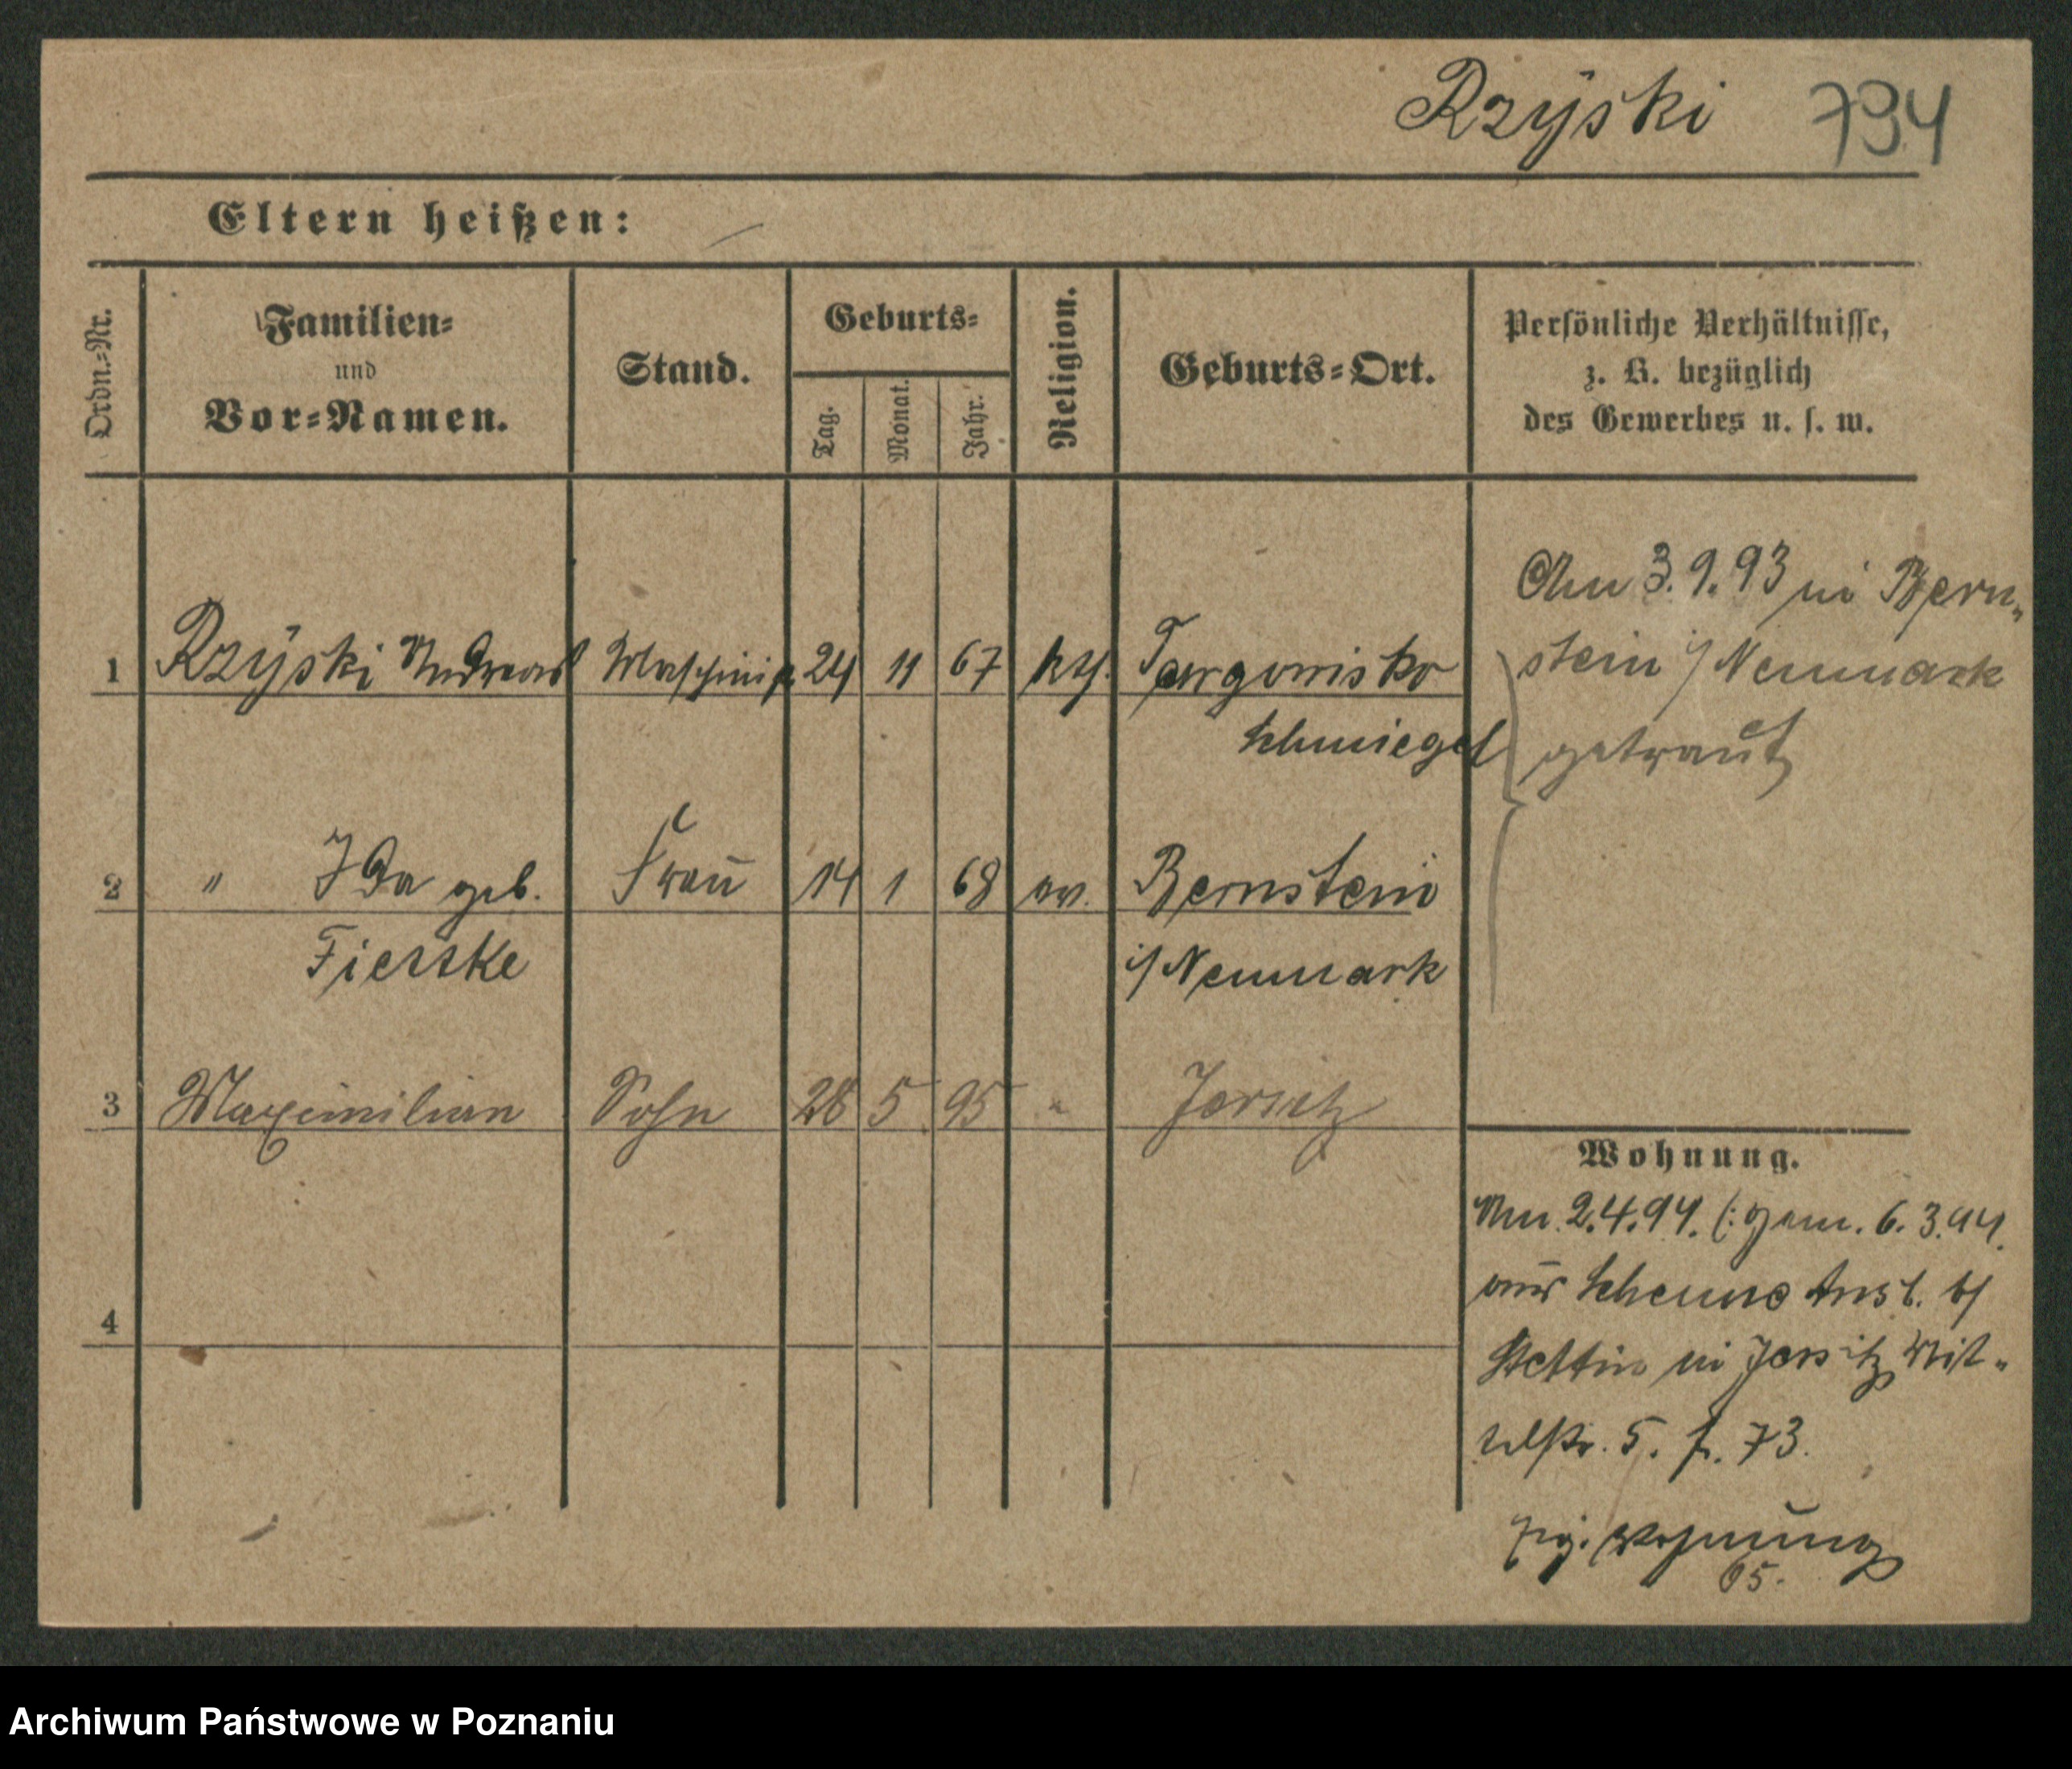 Rzÿski 794
Eltern heißen: —
Ordn.-Nr.
Familien-
und
Vor-Namen.
Stand.
Geburts-
Tag.
Monat.
Jahr.
Religion.
Geburts-Ort.
Persönliche Verhältnisse,
z. B. bezüglich
des Gewerbes u. s. w.
1 Rzÿski Andreas Maschinist 24 11 67 kth. Targowisko
Schmiegel
2 " Ida geb. Frau 14 1 68 ev. Bernstein
Fierske i/Neumark
3 Maximilian Sohn 28 5 95 " Jersitz
4
Am 3.9.93 in Bern-
stein i/Neumark
getraut
Wohnung.
Am 2.4.94. (: gem. 6.3.94.
aus Scheune Anst. b/
Stettin in Jersitz Mit-
telstr. 5. f. 73.
Wohnung
95.
Archiwum Państwowe w Poznaniu